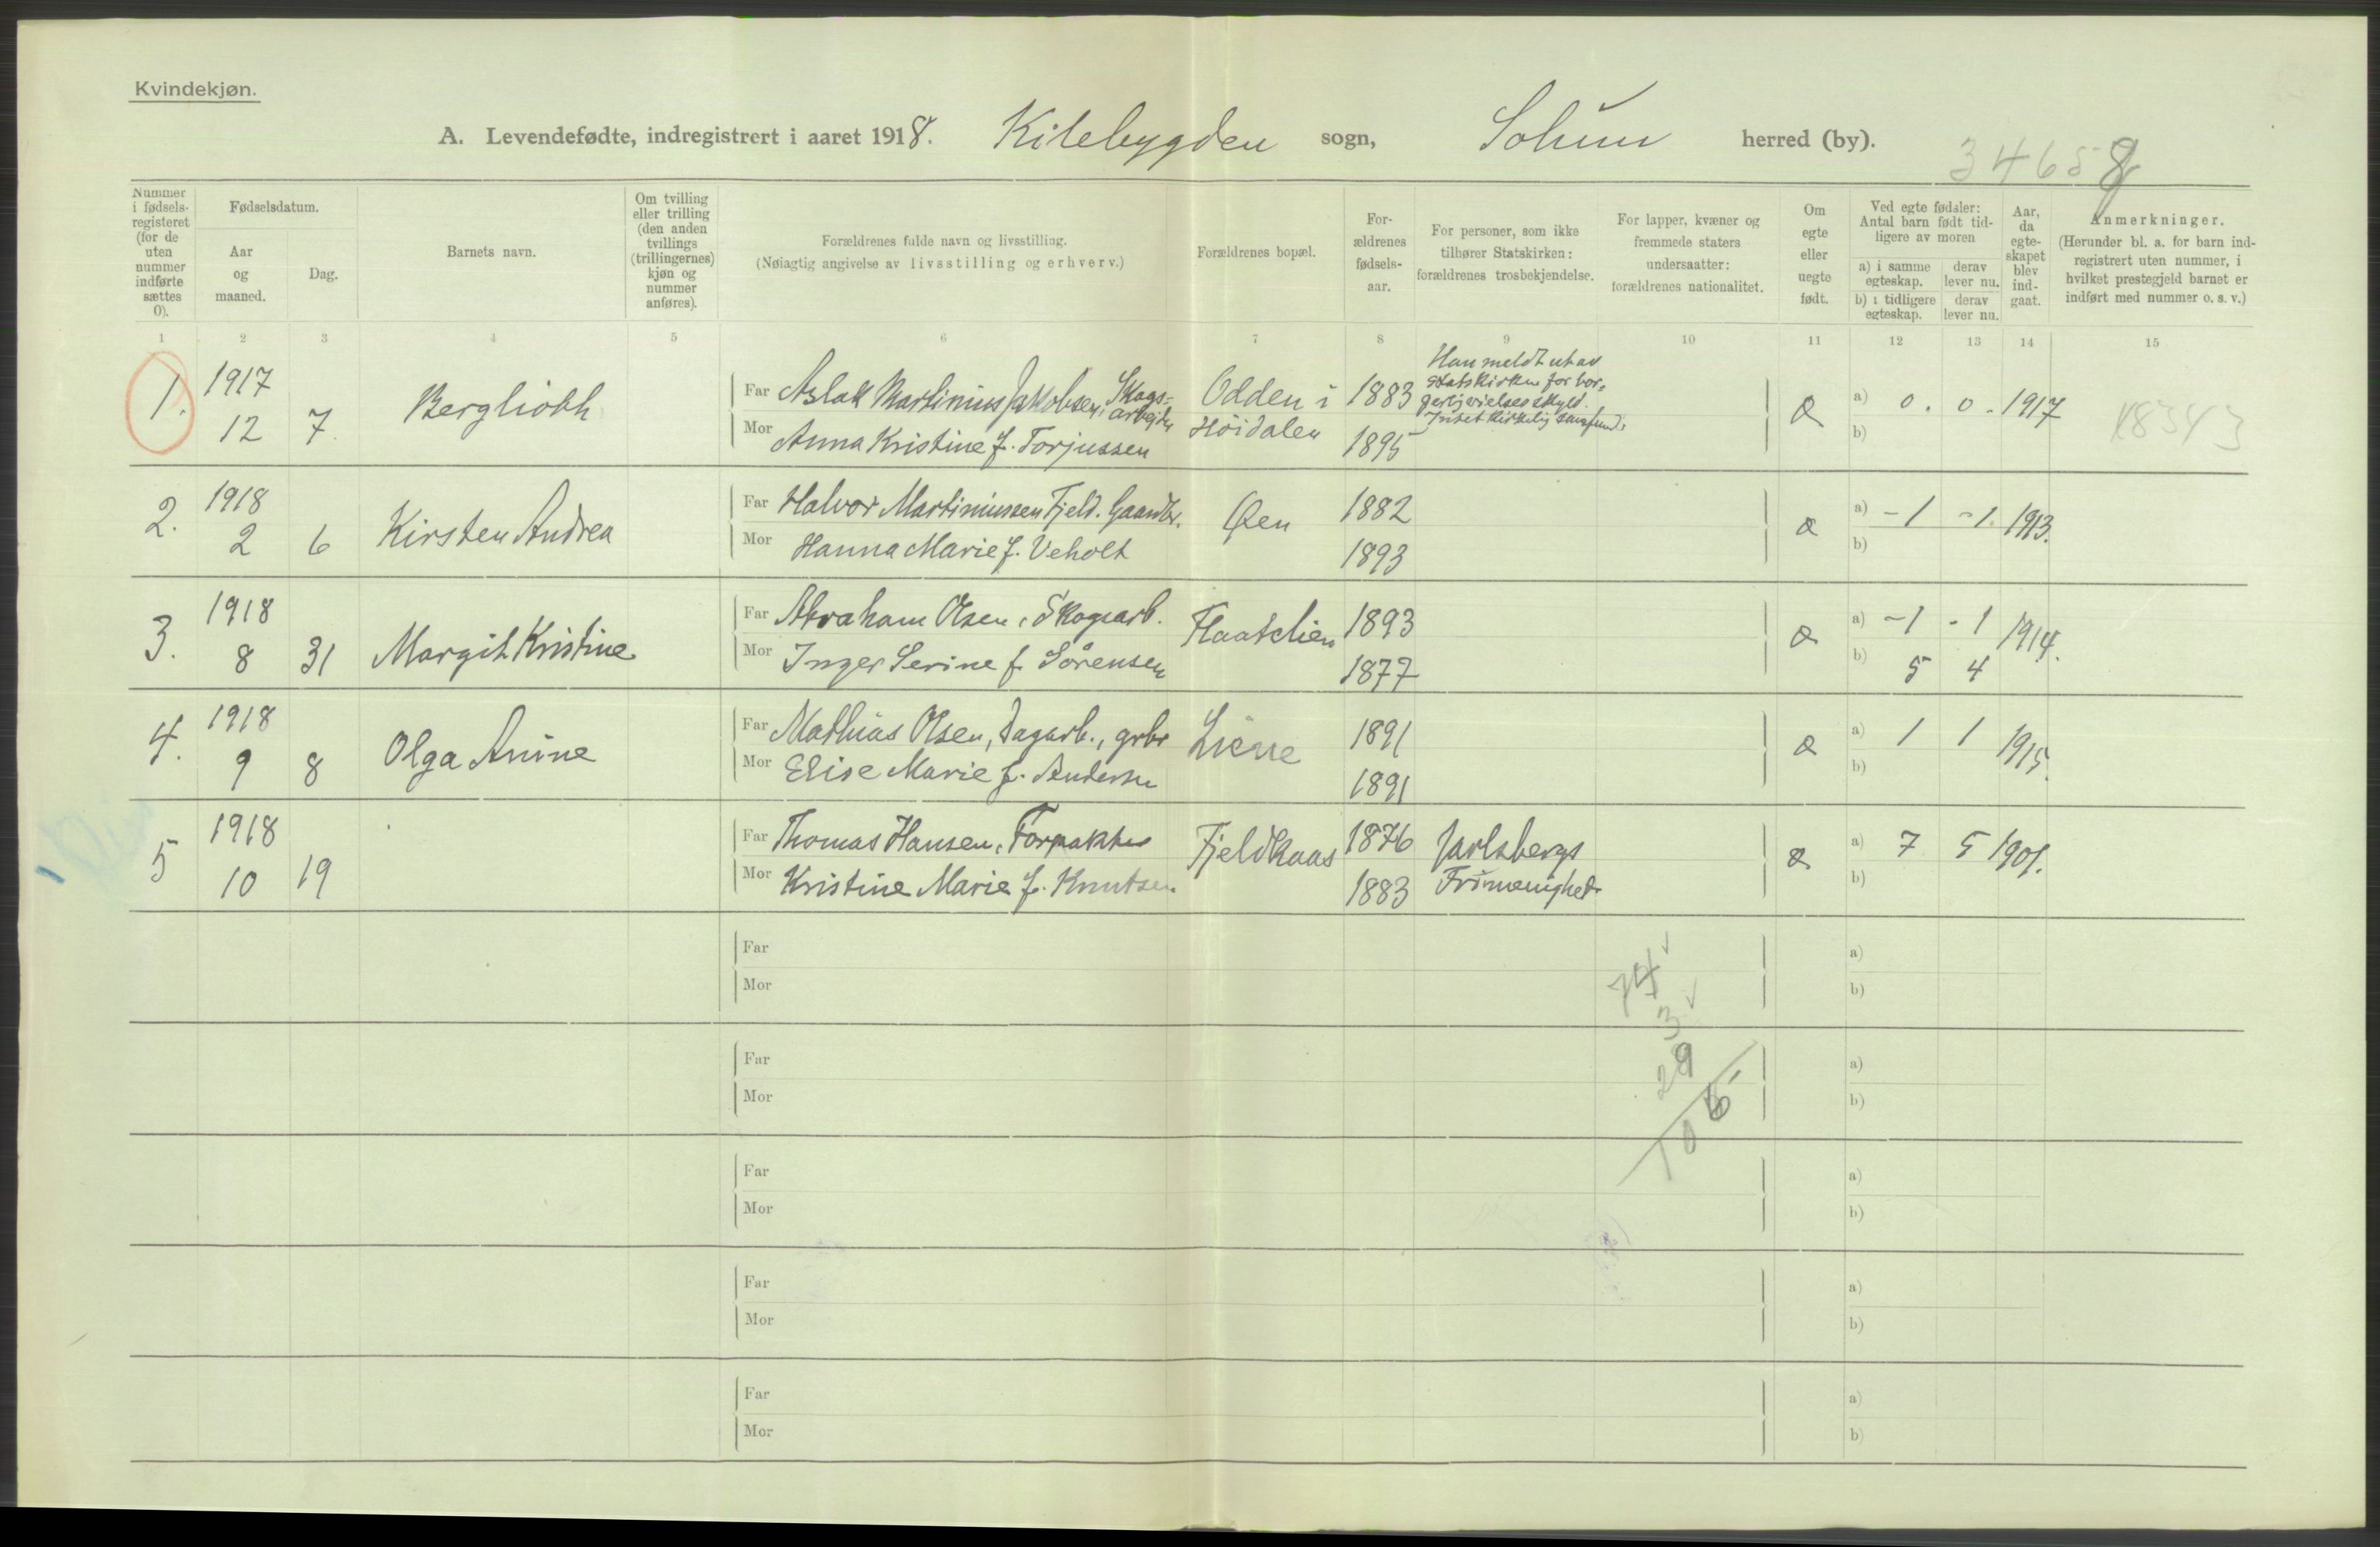 Kvindekjøn.
A. Levendefødte, indregistrert i aaret 1918. Kilebygden sogn, Solum herred (by).
3465 8
Nummer i fødsels-registeret (for de uten nummer indførte sættes 0).
Fødselsdatum.
Aar og maaned.
Dag.
Barnets navn.
Om tvilling eller trilling (den anden tvillings (trillingernes) kjøn og nummer anføres).
Forældrenes fulde navn og livsstilling.
(Nøiagtig angivelse av livsstilling og erhverv.)
Forældrenes bopæl.
For-ældrenes fødsels-aar.
For personer, som ikke tilhører Statskirken: forældrenes trosbekjendelse.
For lapper, kvæner og fremmede staters undersaatter: forældrenes nationalitet.
Om egte eller uegte født.
Ved egte fødsler: Antal barn født tid-ligere av moren
a) i samme egteskap.
derav lever nu.
b) i tidligere egteskap.
derav lever nu.
Aar, da egte-skapet blev ind-gaat.
Anmerkninger.
(Herunder bl. a. for barn ind-registrert uten nummer, i hvilket prestegjeld barnet er indført med nummer o. s. v.)
1 2 3 4 5 6 7 8 9 10 11 12 13 14 15
1. 1917 12 7 Bergliøth
Far Aslak Martinius Jakobsen, Skogs-arbeider
Mor Anna Kristine f. Torjussen
Odden i Höidalen
1883
1895
Han meldt ut av
statskirken for bor-
gerlig vielses skyld.
Intet kirkelig samfund.
a) 0. 0. 1917
b)
18343
2. 1918 2 6 Kirsten Andrea
Far Halvor Martinussen Fjeld. Gaardbr.
Mor Hanna Marie f. Veholt
Øen
1882
1893
a) -1 -1. 1913.
b)
3. 1918 8 31 Margit Kristine
Far Abraham Olsen, Skogsarb.
Mor Inger Serine f. Sörensen
Flaatelien
1893
1877
a) -1 -1 1914.
b) 5 4
4. 1918 9 8 Olga Anine
Far Mathias Olsen, Dagarb., grbr
Mor Elise Marie f. Andersen
Liene
1891
1891
a) 1 1 1915.
b)
5 1918 10 19
Far Thomas Hansen, Forpakter
Mor Kristine Marie f. Knutsen.
Fjeldkaas
1876
1883
Jarlsbergs
Frimenighed.
a) 7 5 1901.
b)
Far
Mor
a)
b)
74
3
29
106
Far
Mor
a)
b)
Far
Mor
a)
b)
Far
Mor
a)
b)
Far
Mor
a)
b)